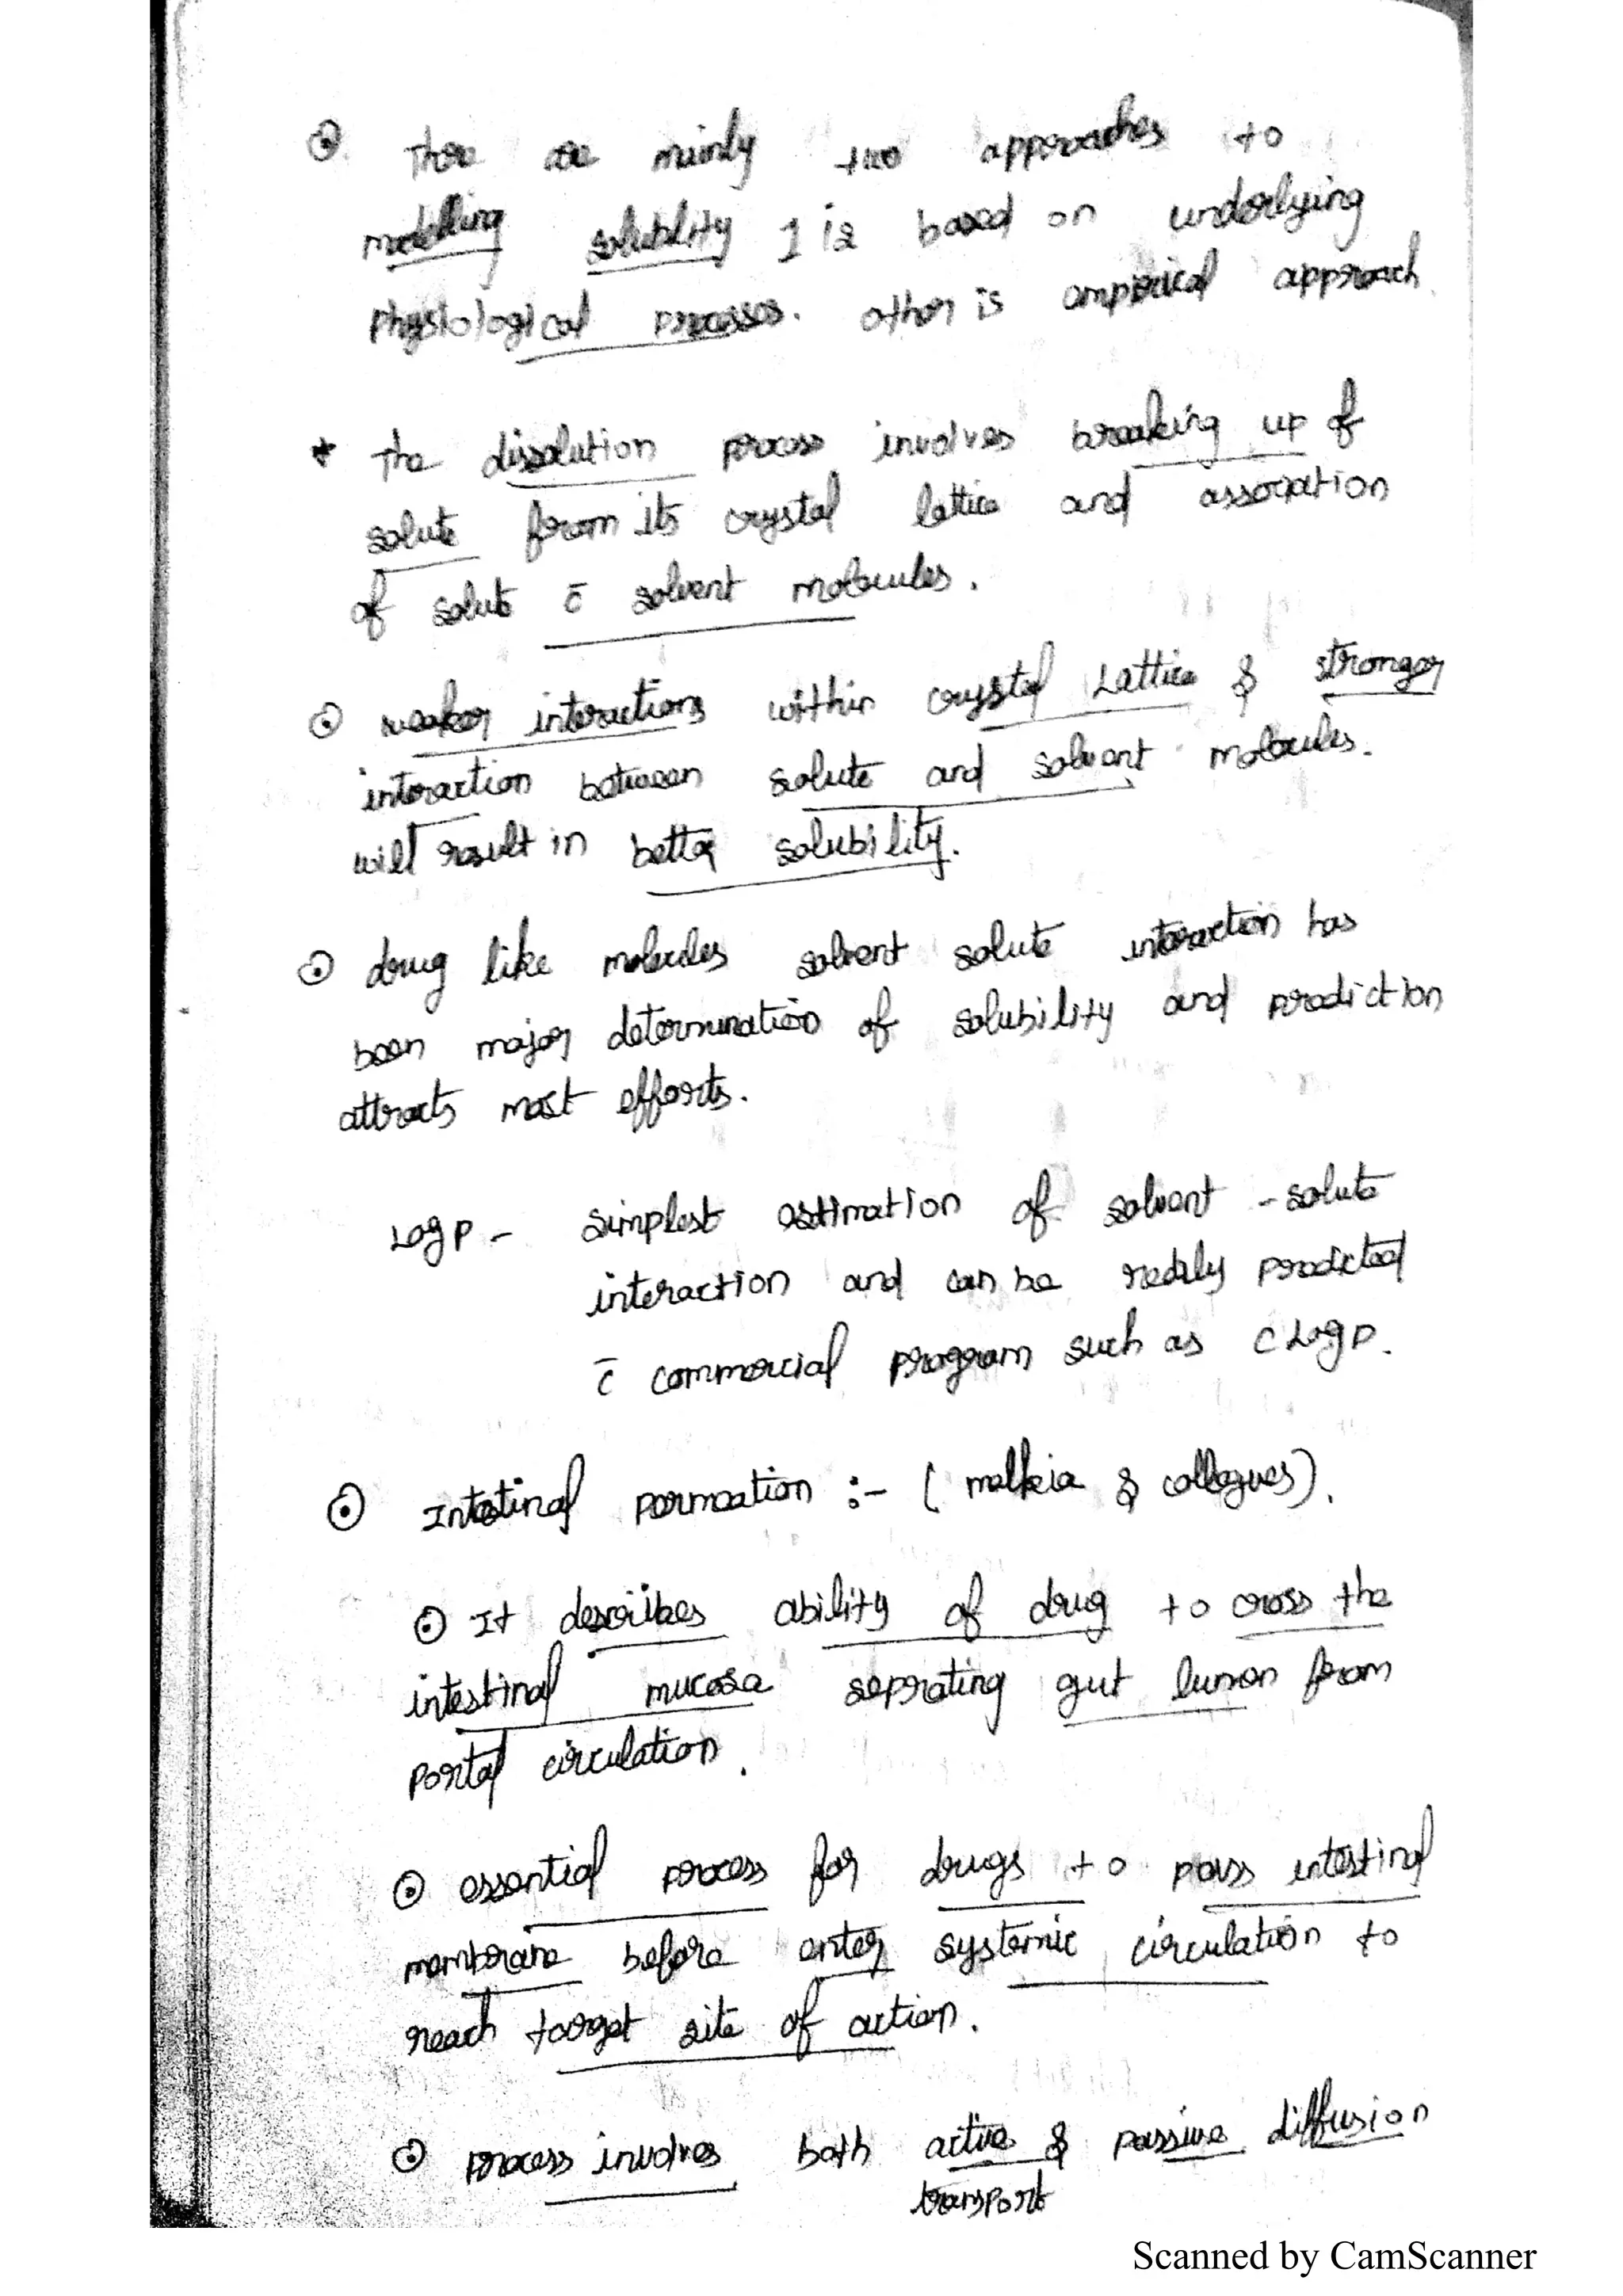 ⊙. There are mainly two approaches to
modelling solubility 1 is based on underlying
physiological processes. other is emperical approach.
* The dissolution process involves breaking up of
solute from its crystal lattice and association
of solute c̄ solvent molecules.
⊙ weaker interactions within crystal Lattice & stronger
interaction between solute and solvent molecules.
will result in better solubility.
⊙ drug like molecules solvent solute interaction has
been major determination of solubility and prediction
attracts most efforts.
Log P - simplest estimation of solvent - solute
interaction and can be redily predicted
c̄ commercial program such as C Log P.
⊙ Intestinal permeation :- ( malkia & collegues).
⊙ It describes ability of drug to cross the
intestinal mucosa seprating gut lumen from
portal circulation.
⊙ essential process for drugs to pass intestinal
membrane before enter systemic circulation to
reach target site of action.
⊙ process involves both active & passive diffusion
transport
Scanned by CamScanner